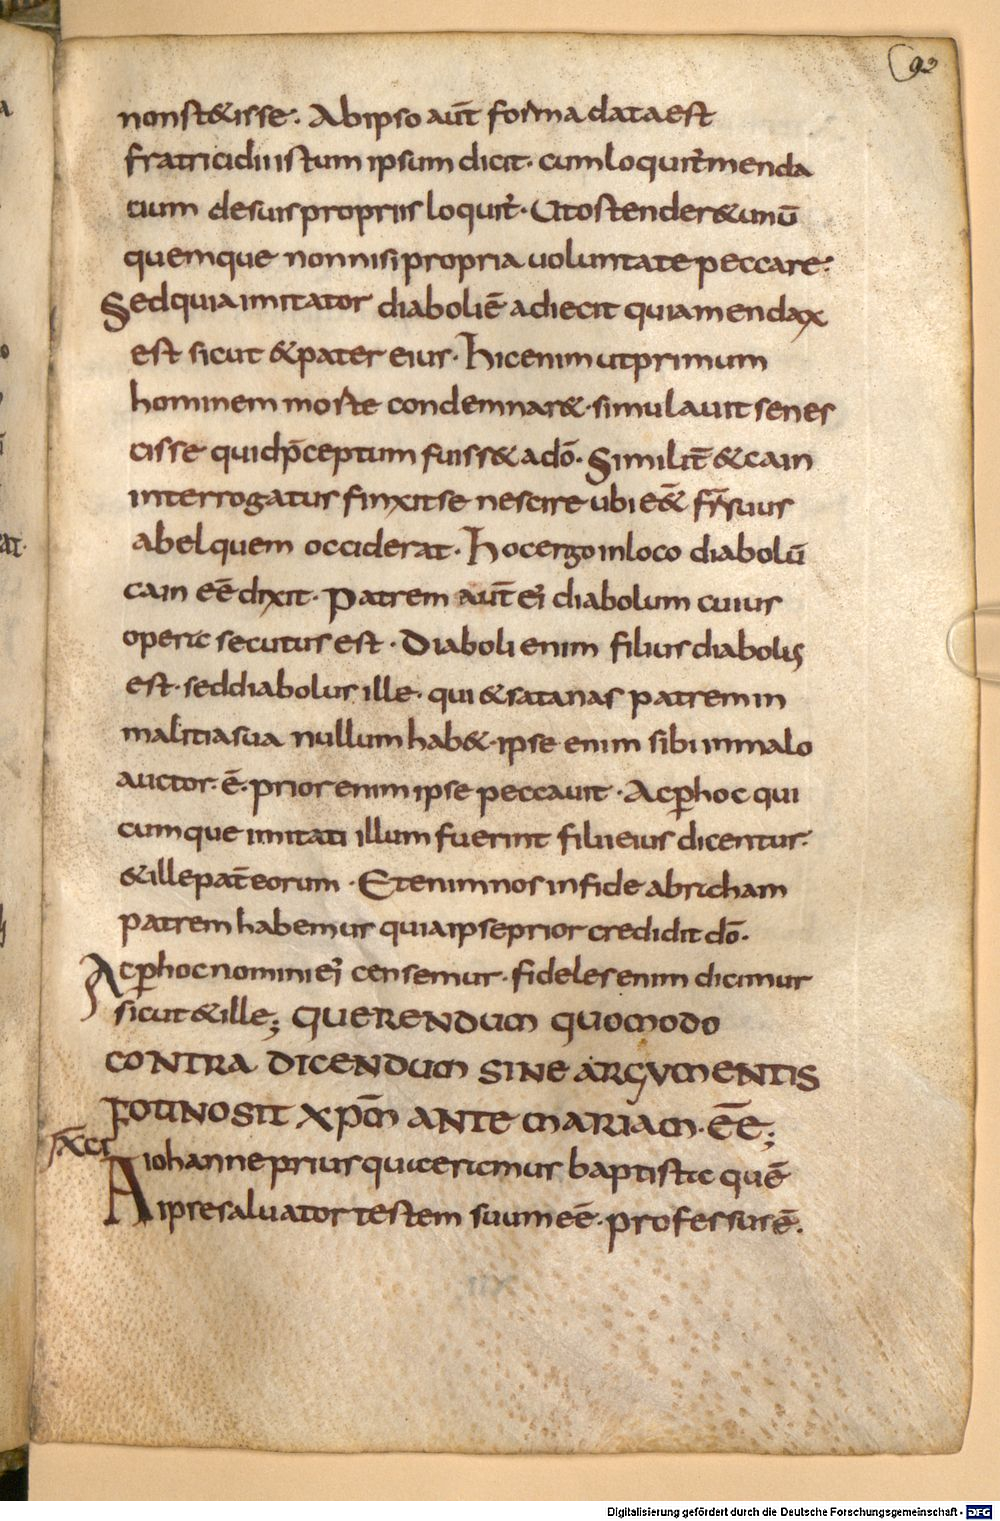 93
nonst&isse. Abipso aut̄ forma data est
fratricidii istum ipsum dicit. cum loquit̄ menda
cium de suis propriis loquit̄. Ut ostender& unū
quemque non nisi propria uoluntate peccare.
Sed quia imitator diaboli ē adiecit quia mendax
est sicut & pater eius. hic enim ut primum
hominem morte condemnar& simulauit se nes
cisse quid p̄ceptum fuiss& a dō. Similit̄ & cain
interrogatus finxit se nescire ubi eē& fr̄ suus
abel quem occiderat. hoc ergo in loco diabolū
cain eē dixit. patrem aut̄ ei' diabolum cuius
opera secutus est. Diaboli enim filius diabolus
est. sed diabolus ille. qui & satanas patrem in
malitia sua nullum hab&. ipse enim sibi in malo
auctor. ē. prior enim ipse peccauit. Ac p hoc qui
cumque imitati illum fuerint filii eius dicentur.
& ille pat̄ eorum. Etenim nos in fide abraham
patrem habemus quia ipse prior credidit dō.
Ac p hoc nomini ei' censemur. fideles enim dicimur
sicut & ille; QUERENDUM QUOMODO
CONTRA DICENDUM SINE ARGUMENTIS
FOTINO SIT XPM̄ ANTE MARIAM. EĒ;
A iohanne prius quaeramus baptista quē
ipse saluator testem suum eē. professus ē.
Digitalisierung gefördert durch die Deutsche Forschungsgemeinschaft - DFG